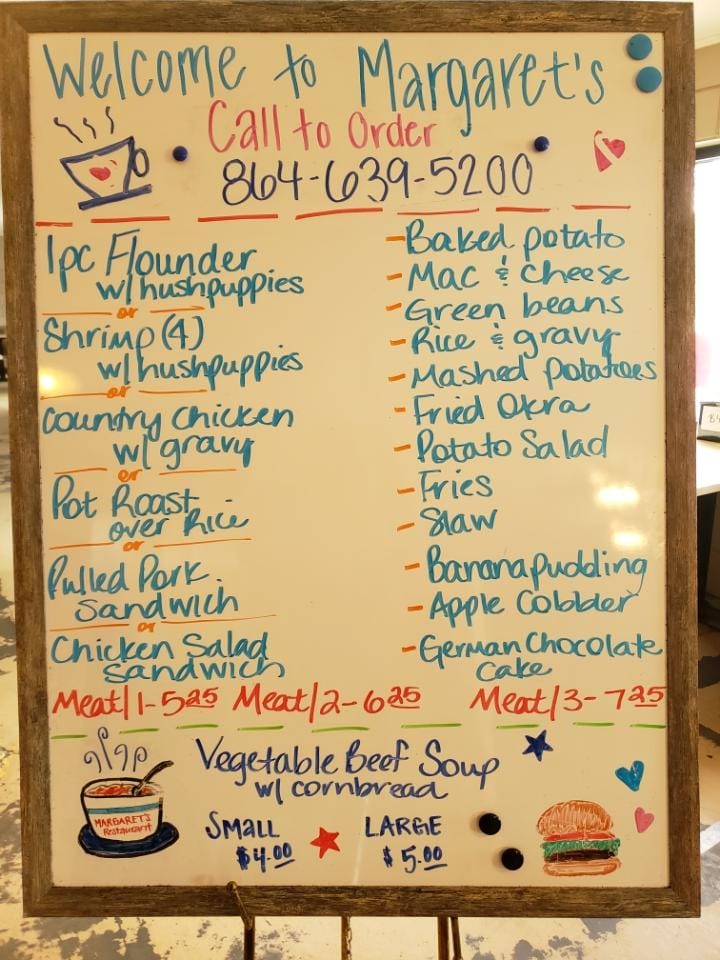 Welcome to Margaret's
Call to Order
864-639-5200
1pc Flounder
w/hushpuppies
or
Shrimp (4)
w/hushpuppies
or
Country Chicken
w/ gravy
or
Pot Roast
over Rice
or
Pulled Pork
Sandwich
or
Chicken Salad
Sandwich
- Baked potato
- Mac & cheese
- Green beans
- Rice & gravy
- Mashed Potatoes
- Fried Okra
- Potato Salad
- Fries
- Slaw
- Banana pudding
- Apple Cobbler
- German Chocolate
Cake
Meat/1-5.25 Meat/2-6.25 Meat/3-7.25
Vegetable Beef Soup
w/ cornbread
SMALL LARGE
$4.00 $5.00
MARGARET'S
Restaurant